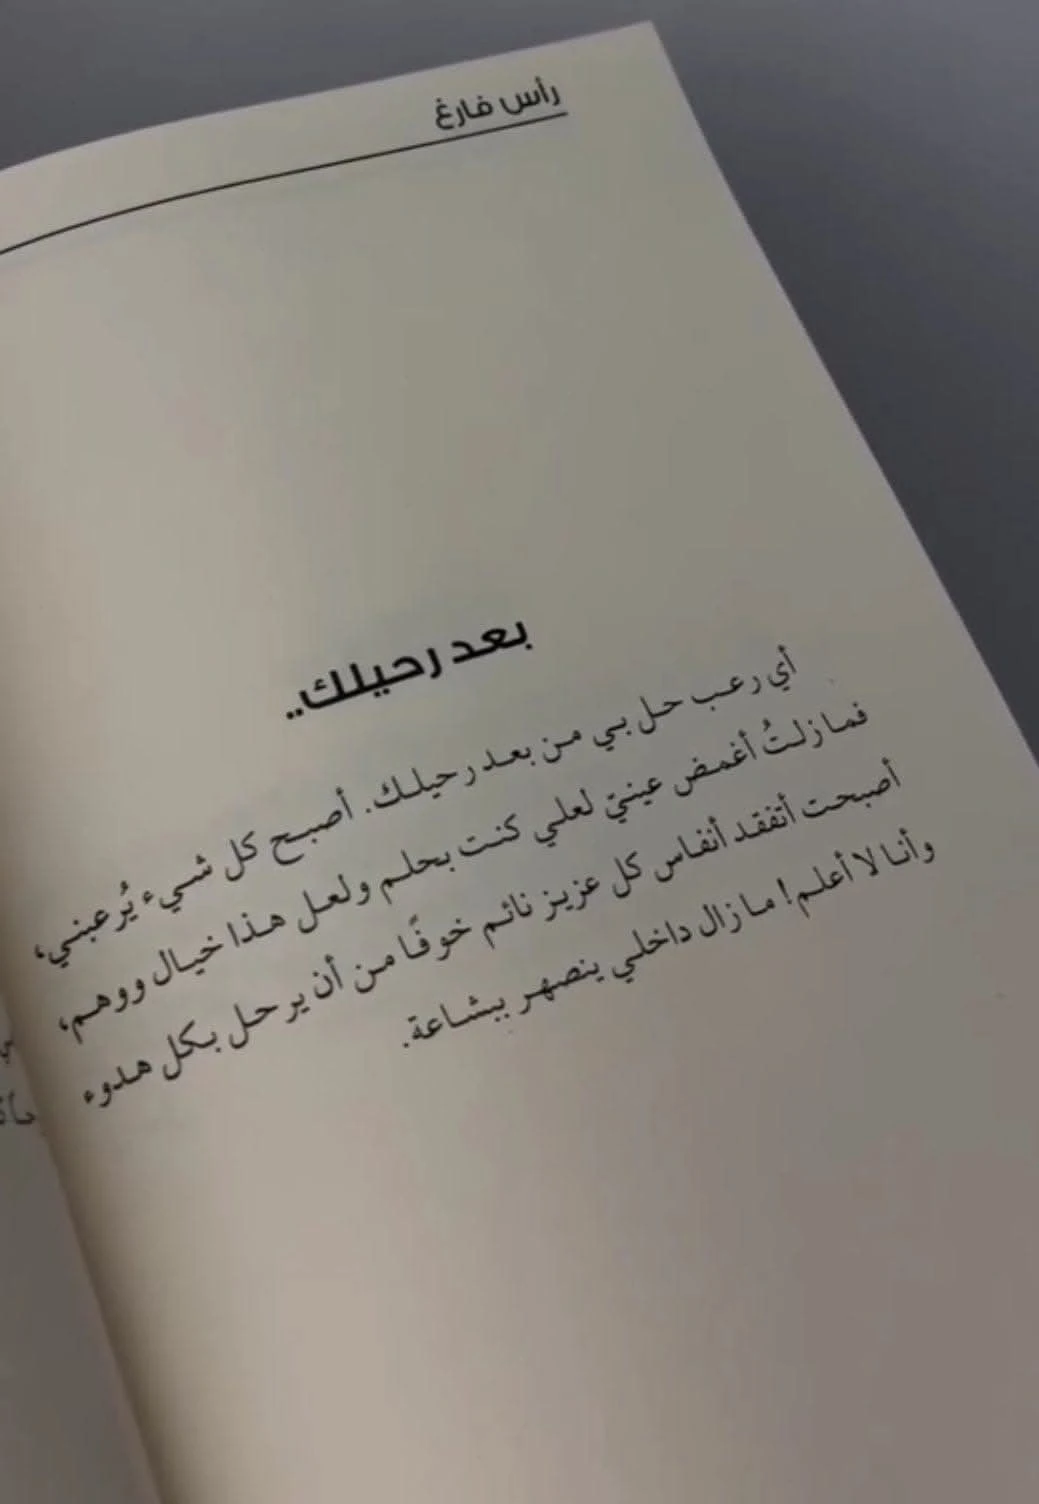 رأس فارغ
بعد رحيلك..
أي رعب حل بي من بعد رحيلك. أصبح كل شيء يُرعبني،
فما زلتُ أغمض عينيّ لعلي كنت بحلم ولعل هذا خيال ووهم،
أصبحت أتفقد أنفاس كل عزيز نائم خوفًا من أن يرحل بكل هدوء
وأنا لا أعلم! ما زال داخلي ينصهر ببشاعة.